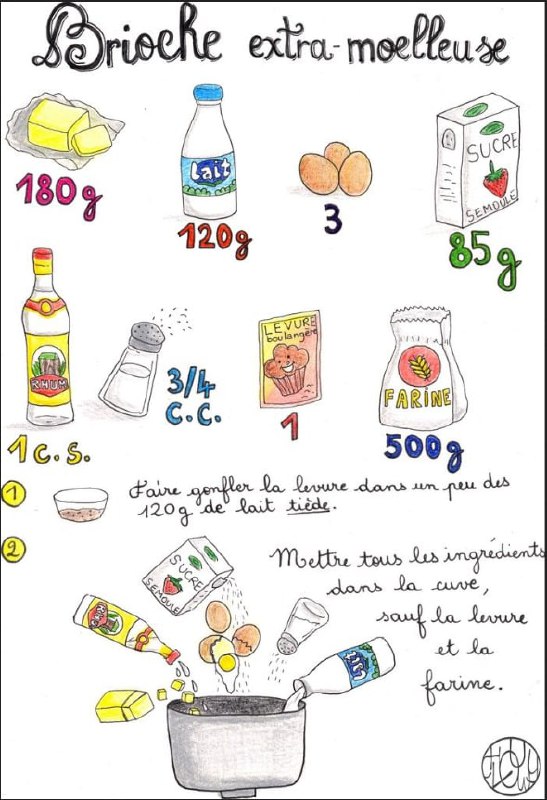 Brioche extra-moelleuse
180g
lait
120g
3
SUCRE
SEMOULE
85g
RHUM
1 c.s.
3/4
c.c.
LEVURE
boulangère
1
FARINE
500g
1
Faire gonfler la levure dans un peu des
120g de lait tiède.
2
Mettre tous les ingrédients
dans la cuve,
sauf la levure
et la
farine.
SUCRE
SEMOULE
lait